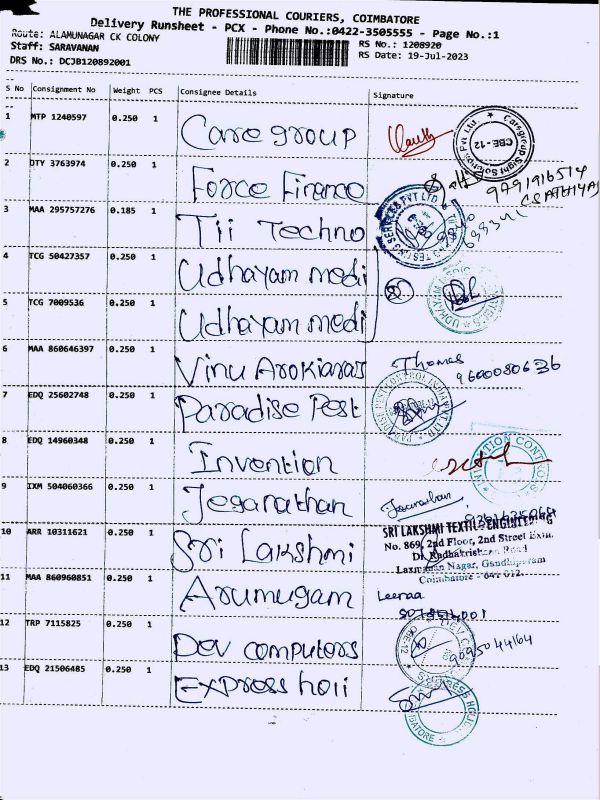 THE PROFESSIONAL COURIERS, COIMBATORE
Delivery Runsheet - PCX - Phone No.:0422-3505555 - Page No.:1
Route: ALAMUNAGAR CK COLONY
RS No.: 1208920
Staff: SARAVANAN
RS Date: 19-Jul-2023
DRS No.: DCJB120892001
S No Consignment No Weight PCS Consignee Details Signature
1 MTP 1240597 0.250 1 Care group
Caregroup Sight Solution Pvt Ltd. CBE-12
2 DTY 3763974 0.250 1 Force Finance
9791916514
3 MAA 295757276 0.185 1 Tii Techno
4 TCG 50427357 0.250 1 Udhayam medi
5 TCG 7009536 0.250 1 Udhayam medi
6 MAA 860646397 0.250 1 Vinu Arokiaraj Thomas
9600080636
7 EDQ 25602748 0.250 1 Paradise Pest
8 EDQ 14960348 0.250 1 Invention
9 IXM 504060366 0.250 1 Jeganathan
10 ARR 10311621 0.250 1 Sri Lakshmi
SRI LAKSHMI TEXTILE ENGINEERING
No. 869, 2nd Floor, 2nd Street Extn.
Dr. Radhakrishnan Road
Laxmanan Nagar, Gandhipuram
Coimbatore - 641 012.
11 MAA 860960851 0.250 1 Arumugam Leeraa
12 TRP 7115825 0.250 1 Dev computers
9095044164
13 EDQ 21506485 0.250 1 Express holi